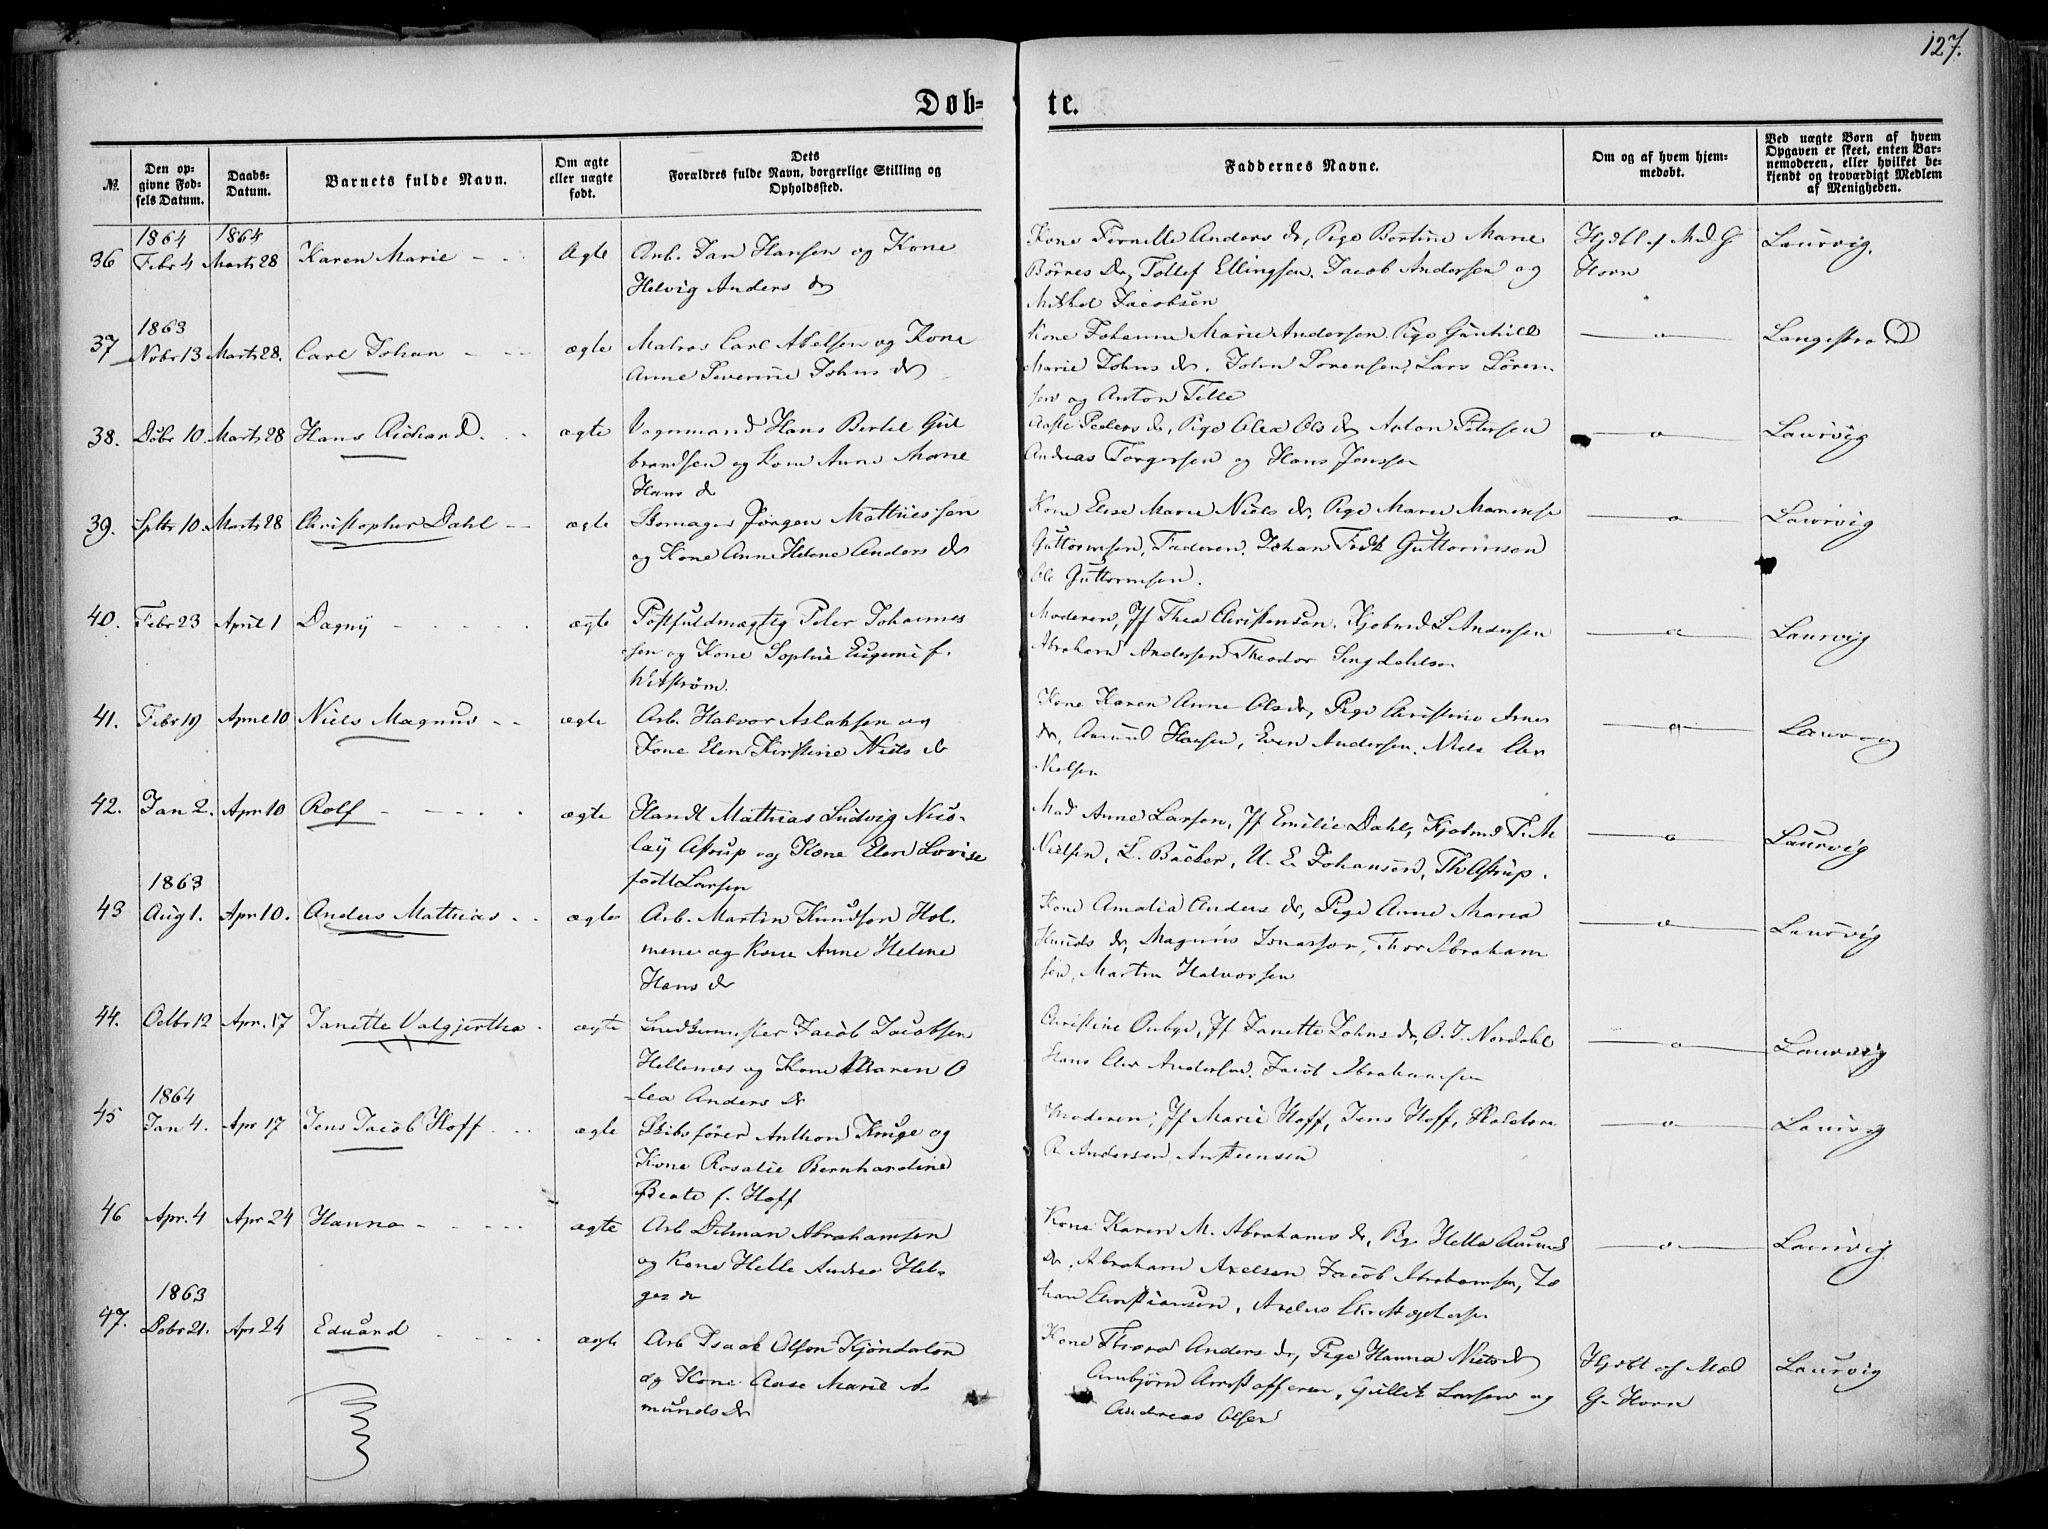 127.
Døb- te.
№.
Den op-
givne Fød-
sels Datum.
Daabs-
Datum.
Barnets fulde Navn.
Om ægte
eller uægte
født.
Dets
Forældres fulde Navn, borgerlige Stilling og
Opholdssted.
Faddernes Navne.
Om og af hvem hjem-
medøbt.
Ved uægte Børn af hvem
Opgaven er skeet, enten Bar-
nemoderen, eller hvilket be-
kjendt og troværdigt Medlem
af Menigheden.
1864 1864
36 Febr 4 Marts 28 Karen Marie Ægte Arb. Jan Hansen og Kone
Helvig Anders dr
Kone Pernille Anders dr, Pige Bertine Marie
Børres dr, Tollef Ellingsen, Jacob Andersen og
Mikkel Jacobsen
Hjdbt af Mad G
Horn
Laurvig.
1863
37 Novbr 13 Marts 28. Carl Johan ægte Matros Carl Abelsen og Kone
Anne Severine Johns dr
Kone Johanne Marie Andersen, Pige Gunhild
Marie Johns dr. John Sørensen, Lars Søren-
sen og Anton
o
Langestrand
38. Dcbr 10 Marts 28 Hans Richard ægte Vognmand Hans Bertel Gul
brandsen og Kone Anne Marie
Hans dr
Aaste Peders dr, Pige Olea Ols dr Anton Petersen
Andreas Torgersen og Hans Jenssen
o
Laurvig
39. Sptbr 10 Marts 28 Christopher Dahl ægte Skomager Jørgen Mathiessen
og Kone Anne Helene Anders dr
Kone Elise Marie Niels dr, Pige Maren
Guttormsen, Faderen, Johan Fredk Guttormsen
Ole Guttormsen.
o
Laurvig
40. Febr 23 April 1 Dagny ægte Postfuldmægtig Peter Johannes
sen og Kone Sophie Eugenie f.
Witstrøm.
Moderen, Jf Thea Christensen, Kjøbmd L Andersen
Abraham Andersen Theodor
o
Laurvig
41. Febr 19 April 10 Niels Magnus ægte Arb. Halvor Aslaksen og
Kone Elen Kirstine Niels dr
Kone Karen Anne Ols dr, Pige Christine
dr, Amund Hansen, Even Andersen, Niels Chr
Nielsen
o
Laurvig
42. Jan 2. Apr 10 Rolf ægte Handl Mathias Ludvig Nico-
lay Astrup og Kone Elen Lovise
født Larsen
Mad Anne Larsen, Jf Emilie Dahl, Kjøbmd
Nielsen, L. Bäcker, U. E. Johansen, Th Astrup.
o
Laurvig
1863
43 Aug 1. Apr 10. Anders Mathias ægte Arb. Martin Knudsen Hol-
mene og Kone Anne Helene
Hans dr
Kone Amalia Anders dr, Pige Anne Maria
Knuds dr, Magnus Jonassen, Thor Abraham
sen, Martin Halvorsen
o
Laurvig
44. Octbr 12 Apr. 17 Janette Valgjertha ægte Snedkermester Jacob Jacobsen
Hellenes og Kone Maren O
lea Anders dr
Christine Auby, Jf Janette Johns dr, O. J. Nordahl
Hans Chr Andersen, Jacob Abrahamsen
o
Laurvig
1864
45 Jan 4. Apr 17 Jens Jacob Hoff ægte Skibsfører Anthon Kruge og
Kone Rosalie Bernhardine
Beate f. Hoff
Moderen, Jf Marie Hoff, Jens Hoff,
Andersen
o
Laurvig
46 Apr. 4 Apr 24 Hanna ægte Arb Ditman Abrahamsen
og Kone Helle Andrea Hel-
ges dr
Kone Karen M. Abrahams dr, Pige Helle Amund
dr, Abraham Axelsen, Jacob Abrahamsen, Jo
han Christiansen,
o
Laurvig
1863
47. Dcbr 21. Apr 24 Eduard ægte Arb Isaak Olsen Kjøndalen
og Kone Aase Marie A-
munds dr
Kone Thora Anders dr, Pige Hanna Niels dr
Anbjørn, Gullik Larsen og
Andreas Olsen
Hjdbt af Mad
G. Horn
Laurvig